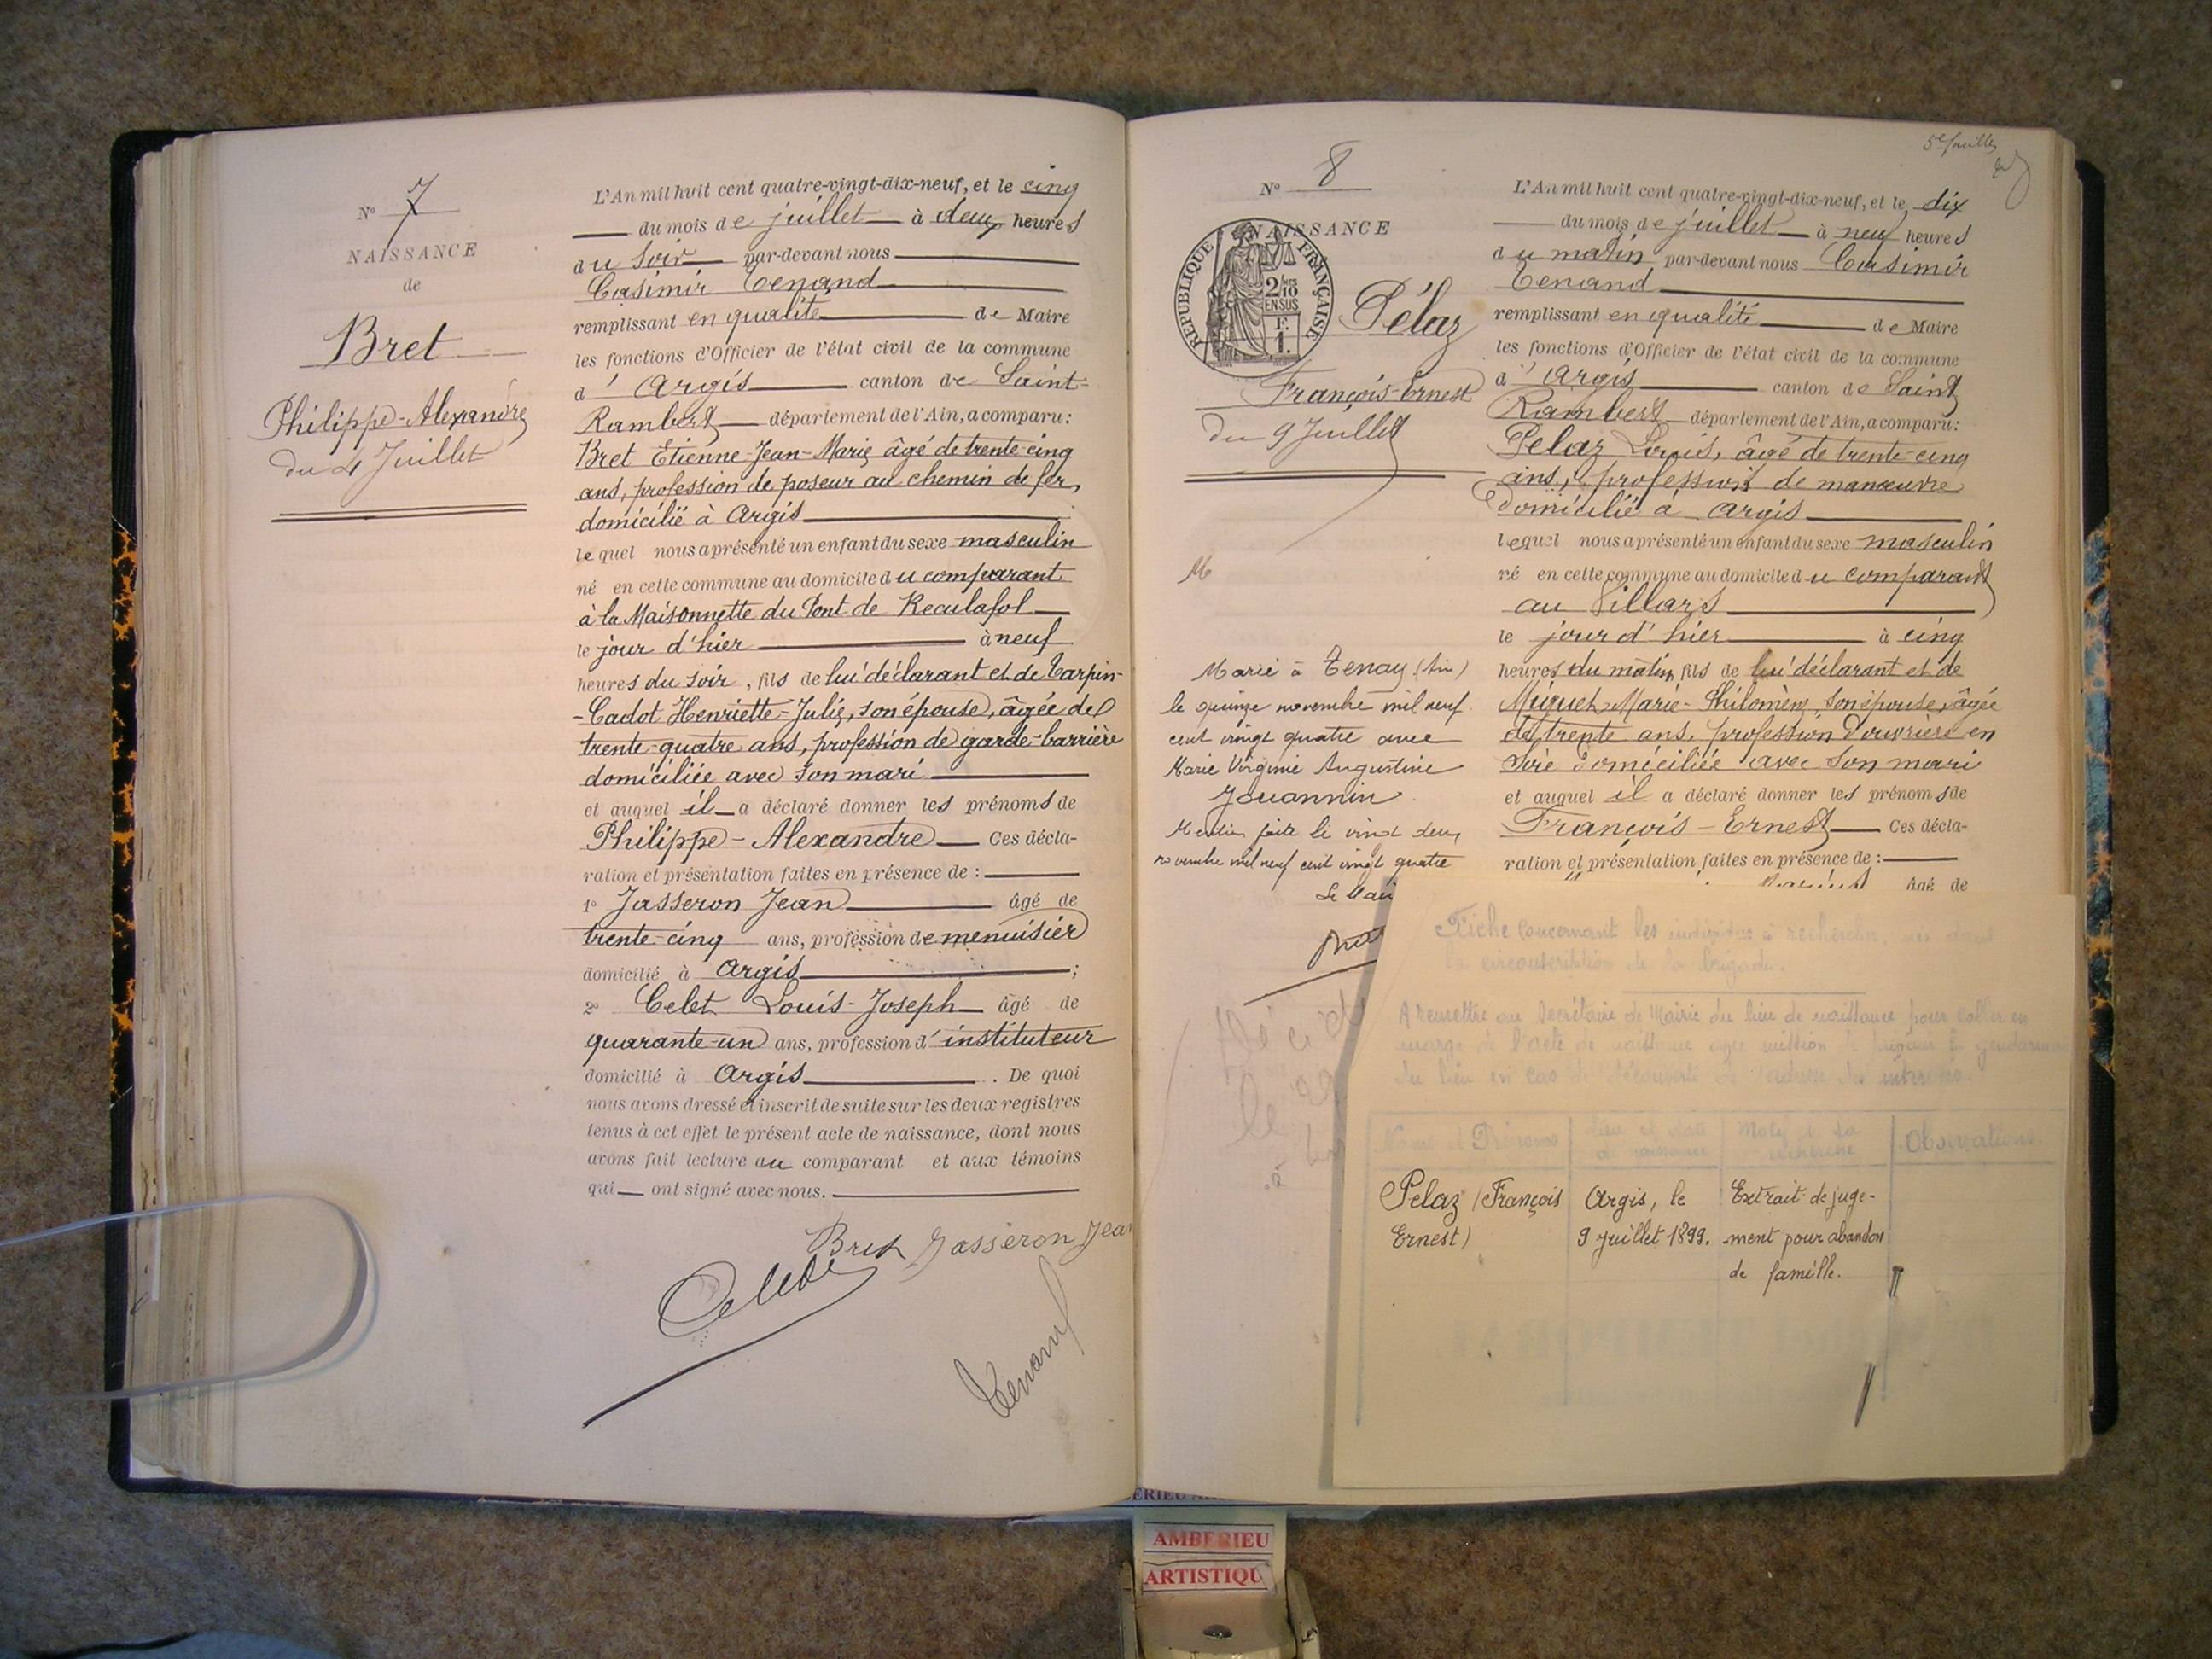 N° 7
NAISSANCE
de
Bret
Philippe-Alexandre
du 4 Juillet
L'An mil huit cent quatre-vingt-dix-neuf, et le cinq
du mois de juillet à deux heures
du soir par-devant nous
Casimir Tenand
remplissant en qualité de Maire
les fonctions d'Officier de l'état civil de la commune
d'Argis canton de Saint-
Rambert département de l'Ain, a comparu:
Bret Etienne-Jean-Marie âgé de trente-cinq
ans, profession de poseur au chemin de fer,
domicilié à Argis
lequel nous a présenté un enfant du sexe masculin
né en cette commune au domicile du comparant
à la Maisonnette du Pont de Reculafol
le jour d'hier à neuf
heures du soir, fils de lui déclarant et de Carpin-
-Cadot Henriette-Julie, son épouse, âgée de
trente-quatre ans, profession de garde-barrière
domiciliée avec son mari
et auquel il a déclaré donner les prénoms de
Philippe-Alexandre Ces décla-
ration et présentation faites en présence de :
1° Jasseron Jean âgé de
trente-cinq ans, profession de menuisier
domicilié à Argis ;
2° Celet Louis-Joseph âgé de
quarante-un ans, profession d'instituteur
domicilié à Argis . De quoi
nous avons dressé et inscrit de suite sur les deux registres
tenus à cet effet le présent acte de naissance, dont nous
avons fait lecture au comparant et aux témoins
qui ont signé avec nous.
Bret Jasseron Jean
Celet
Tenand
5e feuille
N° 8
NAISSANCE
RÉPUBLIQUE FRANÇAISE
2/10
EN SUS
F.
1.
Pélaz
François-Ernest
du 9 Juillet
M
Marié à Tenay (Ain)
le quinze novembre mil neuf
cent vingt quatre avec
Marie Virginie Augustine
Jouannin.
Mention faite le vingt deux
novembre mil neuf cent vingt quatre
Le Mai
Décéd
le
à
L'An mil huit cent quatre-vingt-dix-neuf, et le dix
du mois de juillet à neuf heures
du matin par-devant nous Casimir
Tenand
remplissant en qualité de Maire
les fonctions d'Officier de l'état civil de la commune
d'Argis canton de Saint
Rambert département de l'Ain, a comparu:
Pelaz Louis, âgé de trente-cinq
ans, profession de manœuvre
domicilié à Argis
lequel nous a présenté un enfant du sexe masculin
né en cette commune au domicile du comparant
au Villars
le jour d'hier à cinq
heures du matin, fils de lui déclarant et de
Miguet Marie-Philomène, son épouse, âgée
de trente ans, profession d'ouvrière en
soie domiciliée avec son mari
et auquel il a déclaré donner les prénoms de
François-Ernest Ces décla-
ration et présentation faites en présence de :
âgé de
Fiche concernant les individus à rechercher, nés dans
la circonscription de la brigade.
A remettre au Secrétaire de Mairie du lieu de naissance pour coller en
marge de l'acte de naissance avec mission de prévenir la gendarmerie
du lieu en cas de découverte de l'adresse des intéressés.
Noms et Prénoms
Lieu et date
de naissance
Motif de la
recherche
Observations
Pelaz (François
Ernest)
Argis, le
9 juillet 1899.
Extrait de juge-
ment pour abandon
de famille.
AMBERIEU
ARTISTIQU